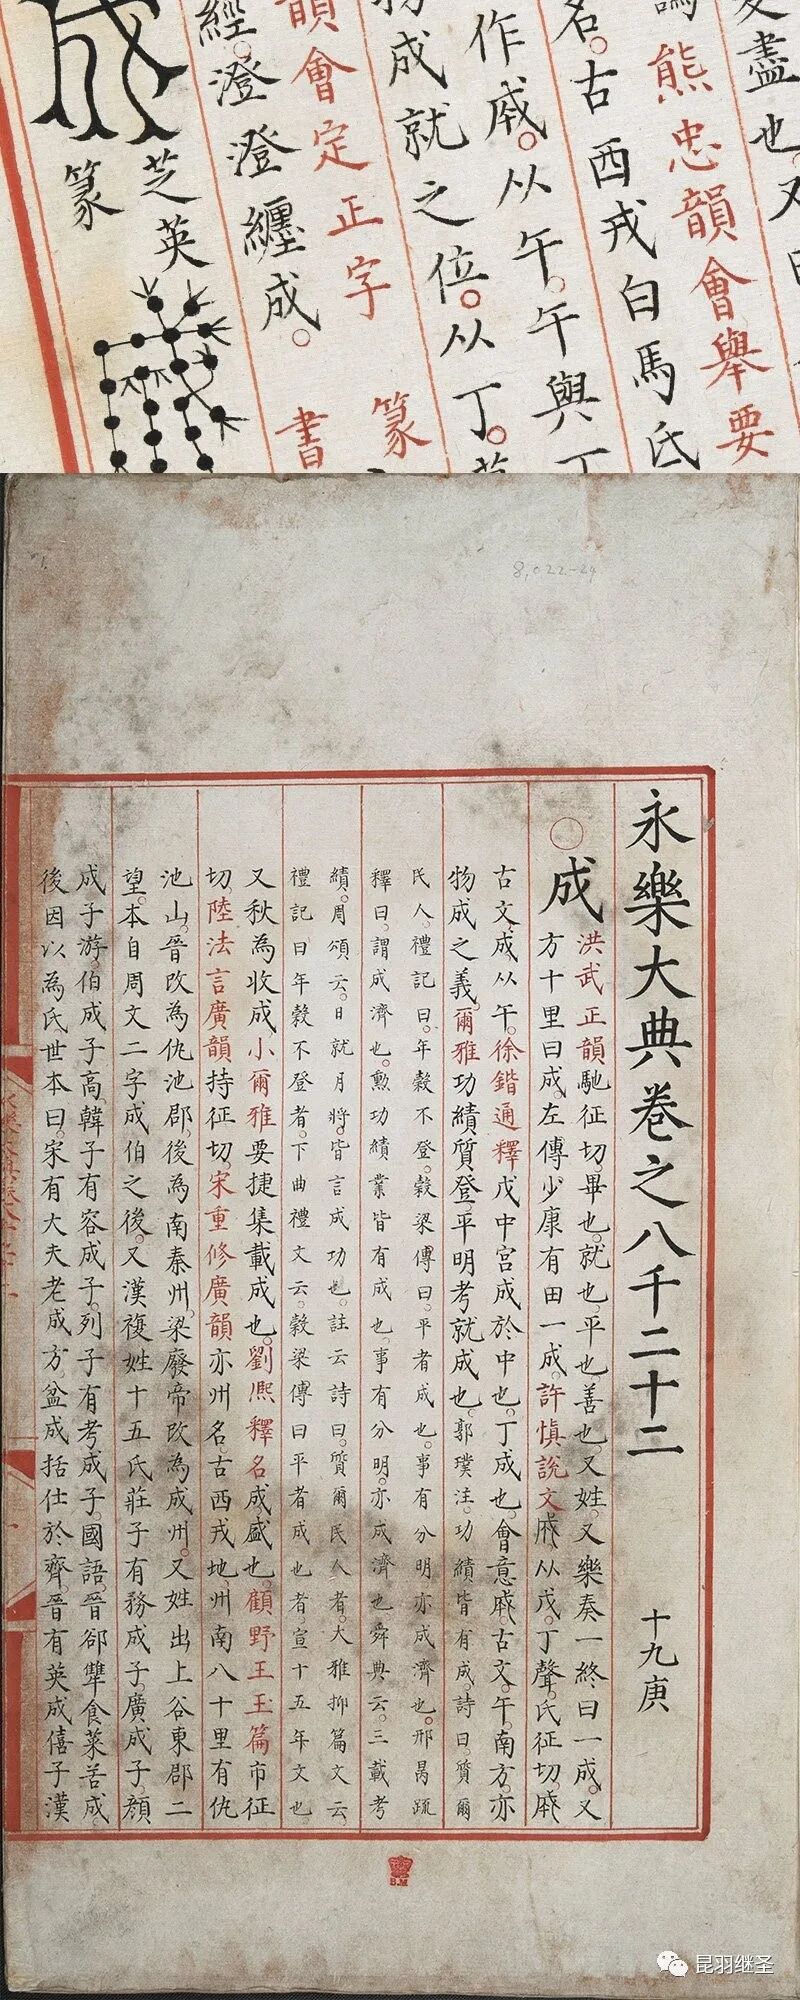 盡也。又曰
熊忠韻會舉要
名。古西戎白馬氐
作戚。从午。午與丁
物成就之位。从丁。
篆
韻會定正字 書
經。澄澄纏成。
芝英
篆
8,022-24
永樂大典卷之八千二十二 十九庚
○成
洪武正韻馳征切。畢也。就也。平也。善也。又姓。又樂奏一終曰一成。又
方十里曰成。左傳少康有田一成。許慎說文戚从戊。丁聲。氏征切。戚
古文。成从午。徐鍇通釋戊中宮成於中也。丁成也。會意戚古文。午南方。亦
物成之義。爾雅功績質登。平明考就成也。郭璞注。功績皆有成。詩曰。質爾
民人。禮記曰。年穀不登。穀梁傳曰。平者成也。事有分明亦成濟也。邢昺疏
釋曰。謂成濟也。勲功績業皆有成也。事有分明。亦成濟也。舜典云。三載考
績。周頌云。日就月將。皆言成功也。註云詩曰。質爾民人者。大雅抑篇文云。
禮記曰年穀不登者。下曲禮文云。穀梁傳曰平者成也者。宣十五年文也。
又秋為收成。小爾雅要捷集載成也。劉熙釋名成盛也。顧野王玉篇巿征
切。陸法言廣韻持征切。宋重修廣韻亦州名。古西戎地。州南八十里有仇
池山。晉改為仇池郡。後為南秦州。梁廢帝改為成州。又姓出上谷東郡二
望。本自周文二字成伯之後。又漢複姓十五氏莊子有務成子。廣成子。顏
成子游。伯成子高。韓子有容成子。列子有考成子。國語。晉郤犨食菜苦成。
後因以為氏。世本曰。宋有大夫老成方。盆成括仕於齊。晉有英成僖子漢
B.M
昆羽继圣